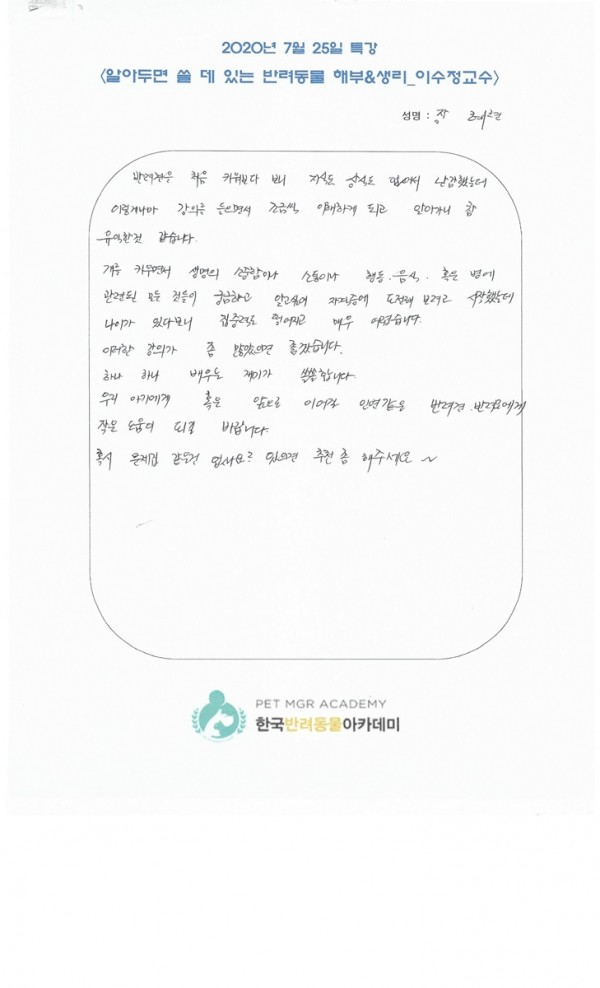 2020년 7월 25일 특강
<알아두면 쓸 데 있는 반려동물 해부&생리_이수정교수>
성명 : 장
반려견을 처음 키워보다 보니 지식도 상식도 없어서 난감했는데
이렇게나마 강의를 들으면서 조금씩 이해하게 되고 알아가니 참
유익한것 같습니다.
개를 키우면서 생명의 소중함이나 소통이나 행동.음식. 혹은 병에
관련된 모든 것들이 궁금하고 알고싶어 자격증에 도전해 보려고 시작했는데
나이가 있다보니 집중력도 떨어지고 매우 어렵습니다.
이러한 강의가 좀 많았으면 좋겠습니다.
하나 하나 배우는 재미가 쏠쏠합니다.
우리 아가에게 혹은 앞으로 이어갈 인연같은 반려견.반려묘에게
작은 도움이 되길 바랍니다.
혹시 문제집 같은건 없나요? 있으면 추천 좀 해주세요~
PET MGR ACADEMY
한국반려동물아카데미